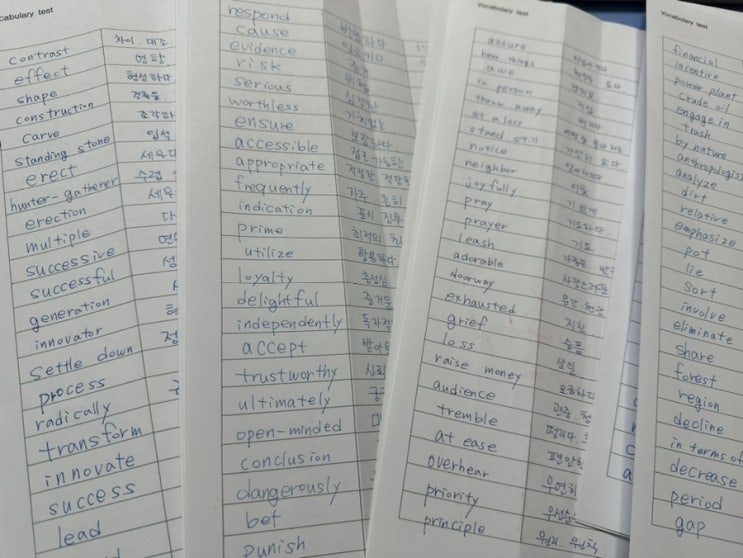 cabulary test
contrast 차이, 대조
effect 영향
shape 형성하다
construction 건축물
carve 조각하
standing stone 입석
erect 세우다
hunter-gatherer 수렵
erection 세우
multiple 다
successive 연
successful 성
generation
innovator 혁
settle down 정
process
radically
transform
innovate
success
lead
respond
cause
evidence
risk 위험
serious 심각한
worthless 가치없는
ensure 보장하다
accessible 접근 가능한
appropriate 적절한 적당한
frequently 자주 흔히
indication 표시 징후
prime 최적의
utilize 활용하다
loyalty 충성심
delightful 즐거운
independently 독자적
accept 받아들
trustworthy 신뢰
ultimately 궁극
open-minded
conclusion
dangerously
bet
punish
Vocabulary test
assure
hear things
awe 경외심
in person 직접
throw away 버리다
at a loss
stand still
notice
neighbor 이웃
joyfully 기쁘게
pray 기도하다
prayer 기도
leash
adorable 사랑스러운
doorway
exhausted 지친
grief 슬픔
loss 상실
raise money 모금하다
audience 관중 청
tremble 떨리다.
at ease 편안한
overhear 우연히
priority 우선순
principle
Vocabulary test
financial
incentive
power plant
crude oil
engage in
trash
by nature
anthropologis
analyze
dirt
relative
emphasize
pot
lie
sort
involve
eliminate
share
forest
region
decline
in terms of
decrease
period
gap